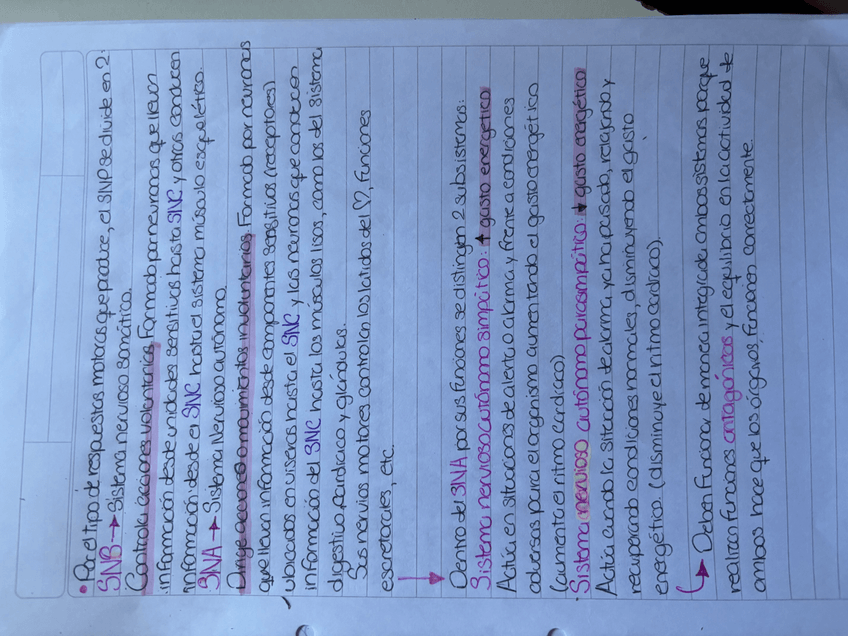 • Por el tipo de respuestas motoras que produce, el SNP se divide en 2:
SNB → Sistema nervioso somático.
Controla acciones voluntarias. Formado por neuronas que llevan
información desde unidades sensitivas hasta SNC, y otras conducen
información desde el SNC hasta el sistema músculo esquelético.
SNA → Sistema Nervioso autónomo.
Dirige acciones o movimientos involuntarios. Formado por neuronas
que llevan información desde componentes sensitivos (receptores)
ubicados en viseras hasta el SNC y las neuronas que conducen
información del SNC hasta los músculos lisos, como los del sistema
digestivo, cardiaco y glándulas.
Sus nervios motores controlan los latidos del ♡, funciones
escretoriales, etc.
↓
Dentro del SNA por sus funciones se distingen 2 subsistemas:
Sistema nervioso autónomo simpático: ↑ gasto energético
Actúa en situaciones de alerta o alarma y frente a condiciones
adversas para el organismo aumentando el gasto energético
(aumenta el ritmo cardiaco)
Sistema nervioso autónomo parasimpático: ↓ gasto energético
Actúa cuando la situación de alarma ya ha pasado, relajando y
recuperando condiciones normales, disminuyendo el gasto
energético. (disminuye el ritmo cardiaco).
↳ Deben funcionar de manera integrada ambos sistemas porque
realizan funciones antagónicas y el equilibrio en la actividad de
ambos hace que los órganos funcionen correctamente.